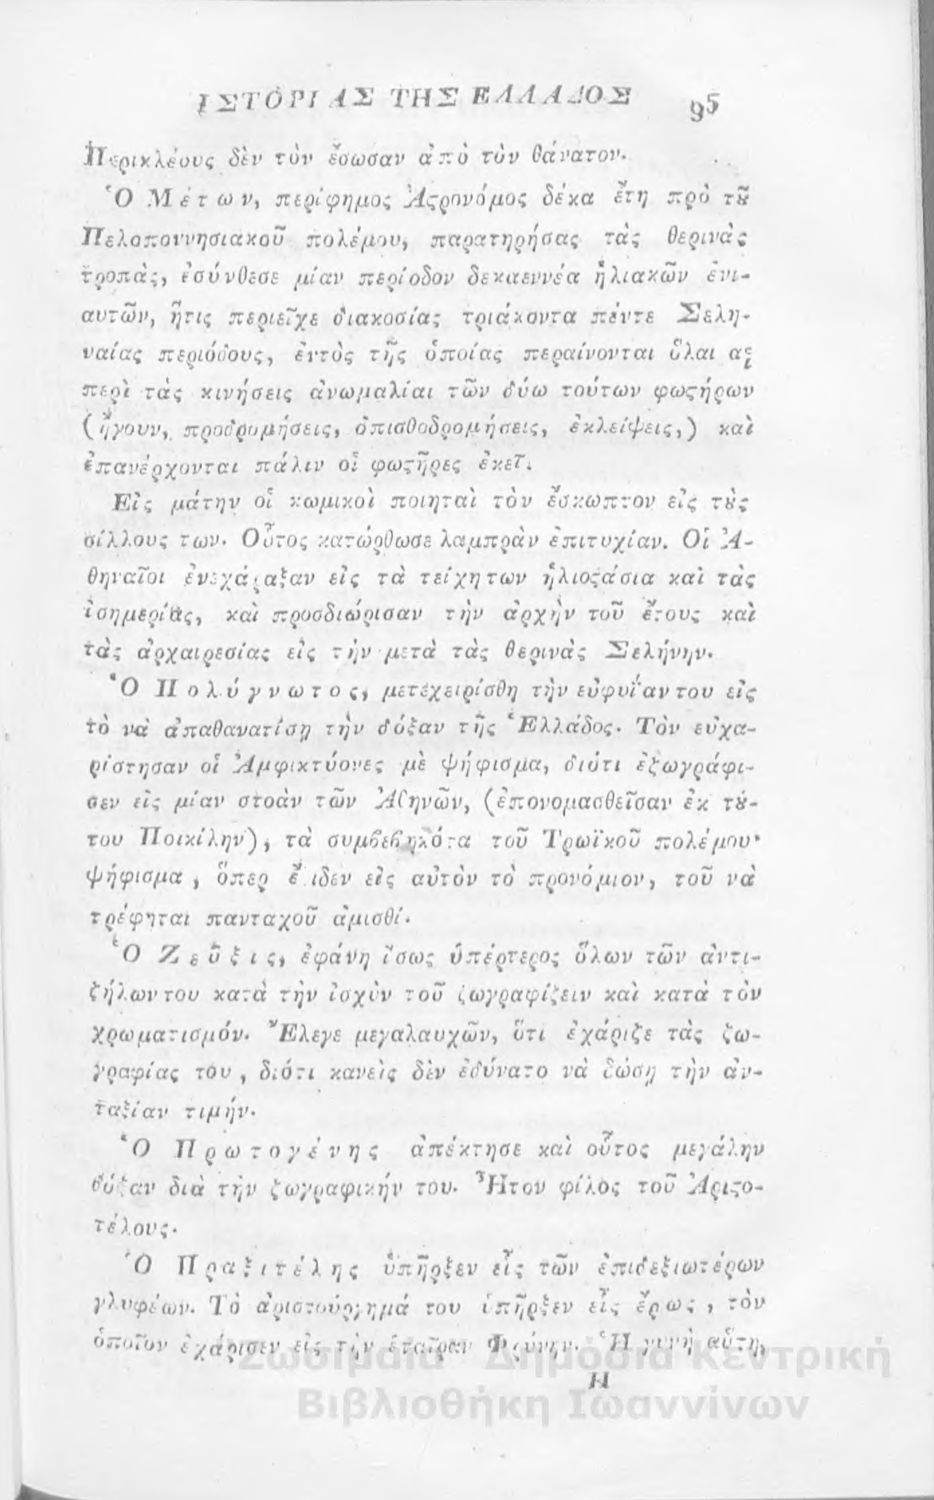 ΙΣΤΟΡΙΑΣ ΤΗΣ ΕΛΛΑΔΟΣ 95
Περικλέους δὲν τὸν ἔσωσαν ἀπὸ τὸν θάνατον.
Ὁ Μέτων, περίφημος Ἀςρονόμος δέκα ἔτη πρὸ τȣ͂
Πελοποννησιακοῦ πολέμου, παρατηρήσας τὰς θερινὰς
τροπὰς, ἐσύνθεσε μίαν περίοδον δεκαεννέα ἡλιακῶν ἐνι-
αυτῶν, ἥτις περιεῖχε διακοσίας τριάκοντα πέντε Σελη-
ναίας περιόδους, ἐντὸς τῆς ὁποίας περαίνονται ὅλαι αἱ
περὶ τὰς κινήσεις ἀνωμαλίαι τῶν δύω τούτων φωςήρων
(ἤγουν, προδρομήσεις, ὀπισθοδρομήσεις, ἐκλείψεις,) καὶ
ἐπανέρχονται πάλιν οἱ φωςῆρες ἐκεῖ.
Εἰς μάτην οἱ κωμικοὶ ποιηταὶ τὸν ἔσκωπτον εἰς τȣ̀ς
σίλλους των. Οὗτος κατώρθωσε λαμπρὰν ἐπιτυχίαν. Οἱ Ἀ-
θηναῖοι ἐνεχάραξαν εἰς τὰ τείχητων ἡλιοςάσια καὶ τὰς
ἰσημερίας, καὶ προσδιώρισαν τὴν ἀρχὴν τοῦ ἔτους καὶ
τὰς ἀρχαιρεσίας εἰς τὴν μετὰ τὰς θερινὰς Σελήνην.
Ὁ Πολύγνωτος, μετεχειρίσθη τὴν εὐφυΐαντου εἰς
τὸ νὰ ἀπαθανατίσῃ τὴν δόξαν τῆς Ἑλλάδος. Τὸν εὐχα-
ρίστησαν οἱ Ἀμφικτύονες μὲ ψήφισμα, διότι ἐζωγράφι-
σεν εἰς μίαν στοὰν τῶν Ἀθηνῶν, (ἐπονομασθεῖσαν ἐκ τȣ́-
του Ποικίλην), τὰ συμβεβηκότα τοῦ Τρωϊκοῦ πολέμου·
ψήφισμα, ὅπερ ἔδιδεν εἰς αὐτὸν τὸ προνόμιον, τοῦ νὰ
τρέφηται πανταχοῦ ἀμισθί.
Ὁ Ζεῦξις, ἐφάνη ἴσως ὑπέρτερος ὅλων τῶν ἀντι-
ζήλωντου κατὰ τὴν ἰσχὺν τοῦ ζωγραφίζειν καὶ κατὰ τὸν
χρωματισμόν. Ἔλεγε μεγαλαυχῶν, ὅτι ἐχάριζε τὰς ζω-
γραφίας του, διότι κανεὶς δὲν ἐδύνατο νὰ δώσῃ τὴν ἀν-
ταξίαν τιμήν.
Ὁ Πρωτογένης ἀπέκτησε καὶ οὗτος μεγάλην
δόξαν διὰ τὴν ζωγραφικήν του. Ἦτον φίλος τοῦ Ἀριςο-
τέλους.
Ὁ Πραξιτέλης ὑπῆρξεν εἷς τῶν ἐπιδεξιωτέρων
γλυφέων. Τὸ ἀριστούργημά του ὑπῆρξεν εἷς ἔρως, τὸν
ὁποῖον ἐχάρισεν εἰς τὴν ἑταῖραν Φρύνην. Ἡ γυνὴ αὕτη,
Η
Ζωσιμαία Δημόσια Κεντρική
Βιβλιοθήκη Ιωαννίνων